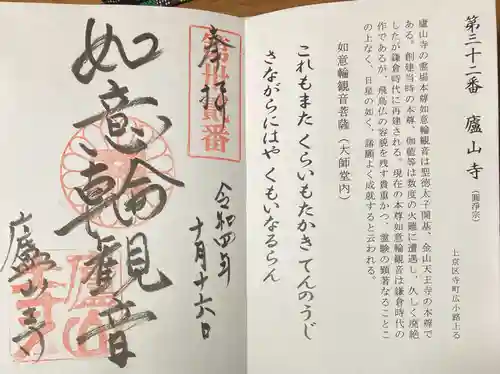 第三十二番 廬山寺 (圓浄宗)
上京区寺町広小路上る
廬山寺の霊場本尊如意輪観音は聖徳太子開基、金山天王寺の本尊で
ある。創建当時の本尊、伽藍等は数度の火難に遭遇し、久しく廃絶
したが鎌倉時代に再建される。現在の本尊如意輪観音は鎌倉時代の
作であるが、飛鳥仏の容貌を残す貴重かつ、霊験の顕著なることこ
の上なく、日星の如く、諸願よく成就すると云われる。
如意輪観音菩薩 (大師堂内)
これもまた くらいもたかき てんのうじ
さながらにはや くもいなるらん
第卅貳番
奉拝
令和四年
十月十六日
如意輪観音
廬山寺